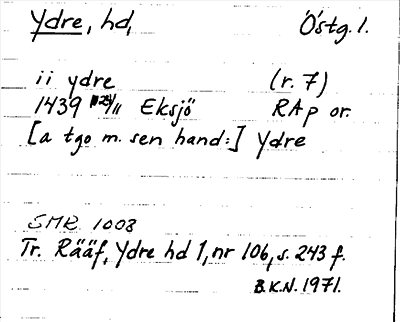 Ydre, hd, Östg. l.
ii ydre (r. 7)
1439 /11 Eksjö RAp or.
[a tgo m. sen hand:] Ydre
SMR 1008
Tr. Rääf, Ydre hd 1, nr 106, s. 243 f.
B.K.N. 1971.